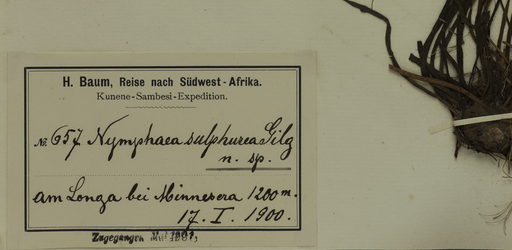 H. Baum, Reise nach Südwest-Afrika.
Kunene-Sambesi-Expedition.
No. 657. Nymphaea sulphurea Gilg
n. sp.
am Longa bei Minnesera 1200 m.
17. I. 1900.
Zugegangen 1901,